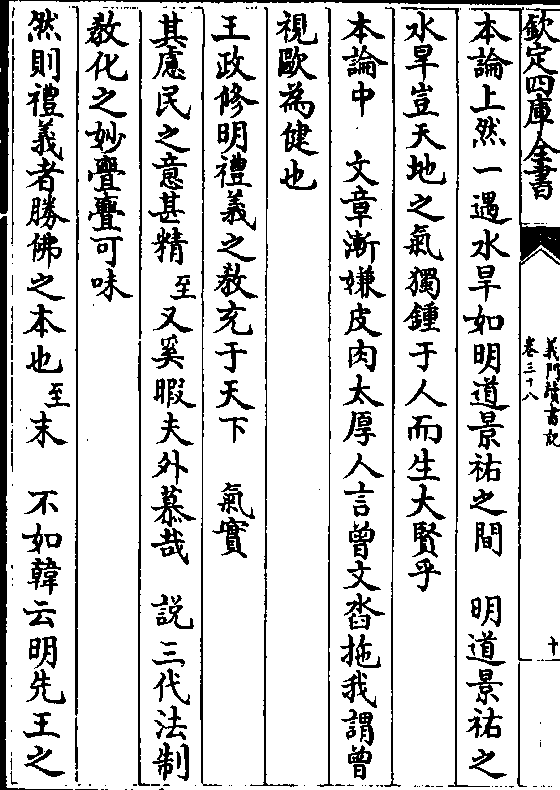 欽定四庫全書
義門讀書記
卷三十八
十
本論上然一遇水旱如明道景祐之間　明道景祐之
水旱豈天地之氣獨鍾于人而生大賢乎
本論中　文章漸嫌皮肉太厚人言曾文沓拖我謂曾
視歐為健也
王政修明禮義之敎充于天下　氣實
其慮民之意甚精至又奚暇夫外慕哉　說三代法制
敎化之妙亹亹可味
然則禮義者勝佛之本也至末　不如韓云明先王之